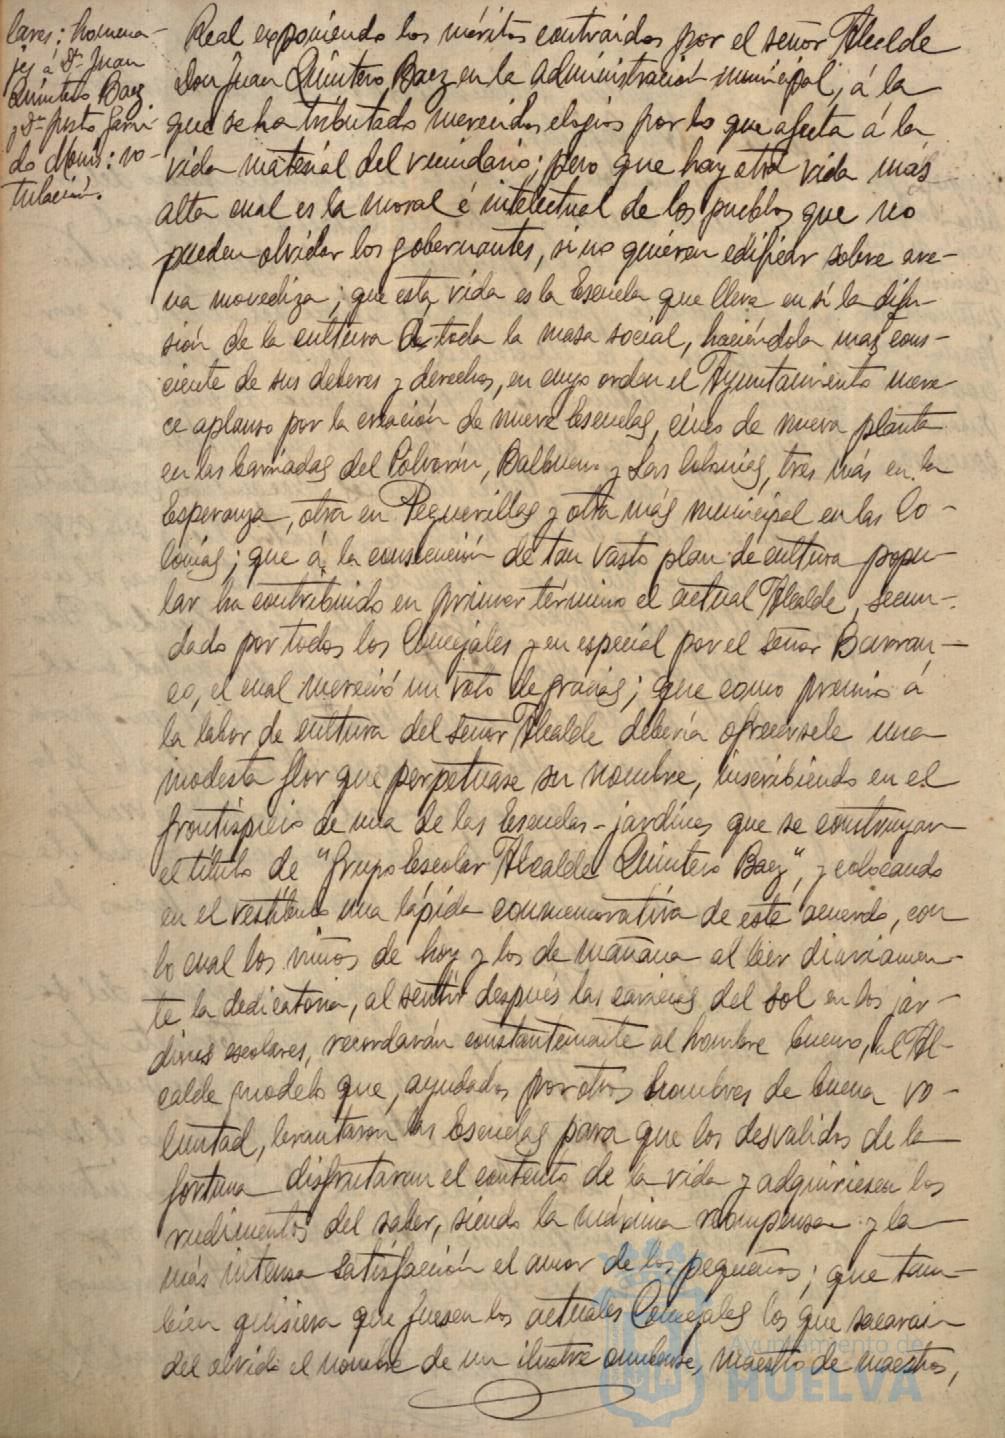 lares: homena-
jes á Dn. Juan
Quintero Baez
y Dn. Justo Garri-
do Moris: ro-
tulación.
Real exponiendo los méritos contraidos por el señor Alcalde
Don Juan Quintero Baez en la administración municipal, á la
que se ha tributado merecidos elogios por lo que afecta á la
vida material del vecindario; pero que hay otra vida más
alta cual es la moral é intelectual de los pueblos que no
pueden olvidar los gobernantes, si no quieren edificar sobre are-
na movediza; que esta vida es la Escuela que lleva en sí la difu-
sión de la cultura de toda la masa social, haciéndola mas cons-
ciente de sus deberes y derechos, en cuyo orden el Ayuntamiento mere-
ce aplauso por la creación de nueve Escuelas, cinco de nueva planta
en las barriadas del Polvorín, Balbueno y Las Colonias, tres más en la
Esperanza, otra en Peguerillas y otra más municipal en las Co-
lonias; que á la consecución de tan vasto plan de cultura popu-
lar ha contribuido en primer término el actual Alcalde, secun-
dado por todos los Concejales y en especial por el señor Barran-
co, el cual mereció un voto de gracias; que como premio á
la labor de cultura del señor Alcalde debería ofrecersele una
modesta flor que perpetuase su nombre, inscribiendo en el
frontispicio de una de las Escuelas-jardines que se construyan
el título de "Grupo Escolar Alcalde Quintero Baez", y colocando
en el vestíbulo una lápida conmemorativa de este acuerdo, con
lo cual los niños de hoy y los de mañana al leer diariamen-
te la dedicatoria, al sentir después las caricias del sol en los jar-
dines escolares, recordarán constantemente al hombre bueno, al Al-
calde modelo que, ayudados por otros hombres de buena vo-
luntad, levantaron las Escuelas para que los desvalidos de la
fortuna disfrutaran el contento de la vida y adquiriesen los
rudimentos del saber, siendo la máxima recompensa y la
más intensa satisfacción el amor de los pequeños; que tam-
bien quisiera que fuesen los actuales Concejales los que sacaran
del olvido el nombre de un ilustre onubense, maestro de maestros,
Ayuntamiento de
HUELVA